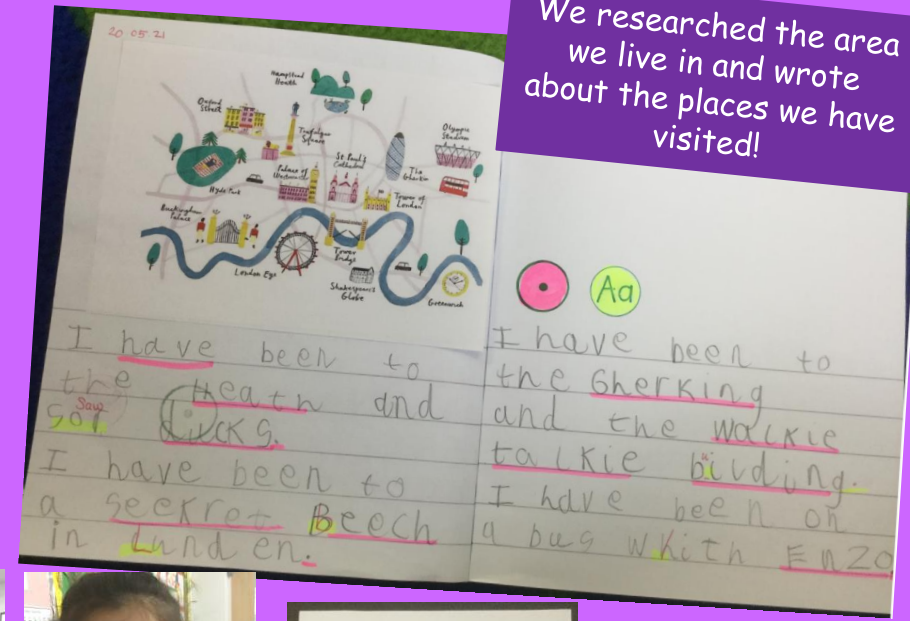 We researched the area
we live in and wrote
about the places we have
visited!
20.05.21
Hampstead
Heath
Oxford
Street
Trafalgar
Square
Olympic
Stadium
St Paul's
Cathedral
The
Gherkin
Palace of
Westminster
Hyde Park
Tower of
London
Buckingham
Palace
London Eye
Tower
Bridge
Shakespeare's
Globe
Greenwich
I have been to
the Heath and
Saw
Ducks.
I have been to
a seekret Beech
in Lunden.
Aa
I have been to
the Gherking
and the walkie
talkie bilding.
I have been on
a bus whith Enzo